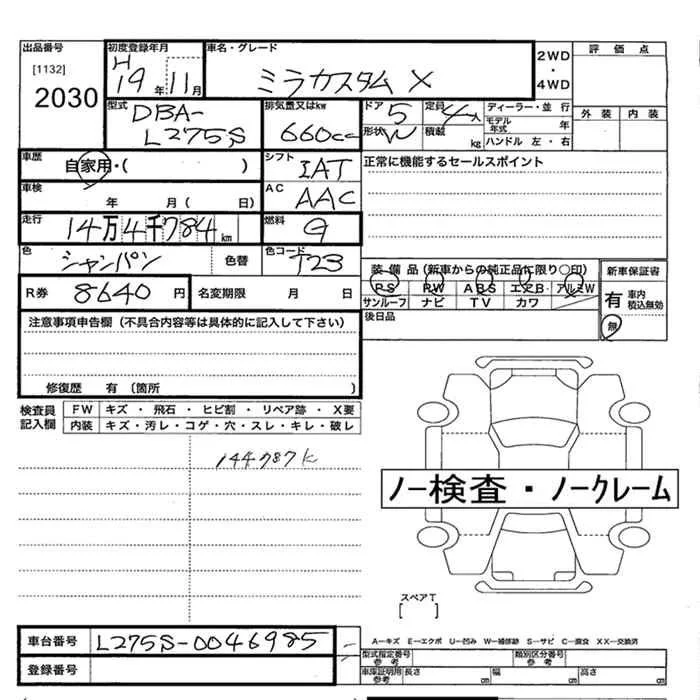 出品番号 初度登録年月 車名・グレード 2WD・4WD 評価点
[1132] H19年11月 ミラカスタム X
2030 外装 内装
型式 DBA-L275S 排気量又はkw 660cc ドア 5 定員 4人 ディーラー・並行
形状 W 積載 kg モデル年式 年
ハンドル 左・右
車歴 自家用・( ) シフト IAT 正常に機能するセールスポイント
車検 年 月 ( 日) AC AAC
走行 14万4千784km 燃料 G
色 シャンパン 色替 色コード T23 装備品(新車からの純正品に限り○印) 新車保証書
R券 8640円 名変期限 月 日 PS PW ABS エアB・アルミW 有 車内積込無効
サンルーフ ナビ TV カワ 無
注意事項申告欄(不具合内容等は具体的に記入して下さい) 後日品
修復歴 有 (箇所 )
検査員記入欄 FW キズ・飛石・ヒビ割・リペア跡・X要
内装 キズ・汚レ・コゲ・穴・スレ・キレ・破レ
144787k
ノー検査・ノークレーム
スペアT
[ ]
車台番号 L275S-0046985 A－キズ E－エクボ U－凹み W－補修跡 S－サビ C－腐食 XX－交換済
登録番号 型式指定番号 参考 類別区分番号 参考
車庫証明用 参考 長さ cm 幅 cm 高さ cm